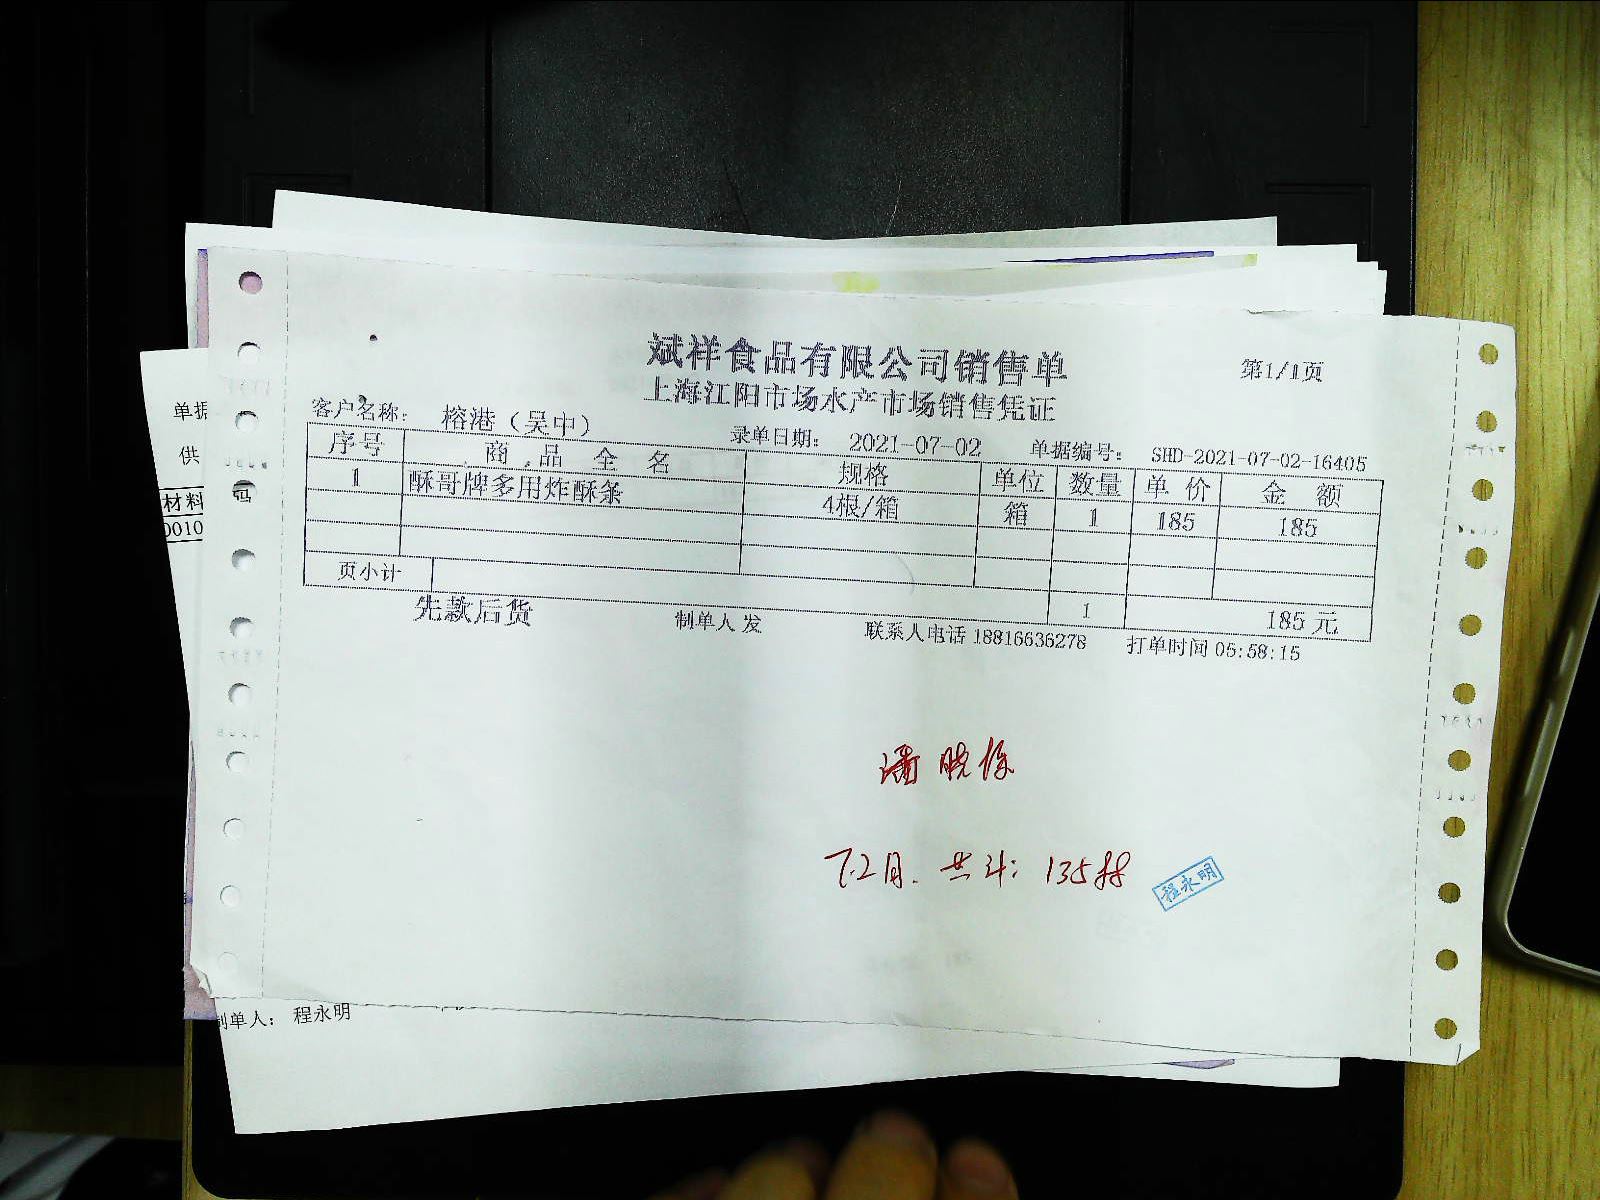 斌祥食品有限公司销售单
第1/1页
上海江阳市场水产市场销售凭证
客户名称: 榕港（吴中） 录单日期: 2021-07-02 单据编号: SHD-2021-07-02-16405
序号 商品全名 规格 单位 数量 单价 金额
1 酥哥牌多用炸酥条 4根/箱 箱 1 185 185
页小计 1 185元
先款后货 制单人 发 联系人电话 18816636278 打单时间 05:58:15
潘晓
7.2月. 共计: 135
程永明
单据
供
码
材料
0010
制单人: 程永明